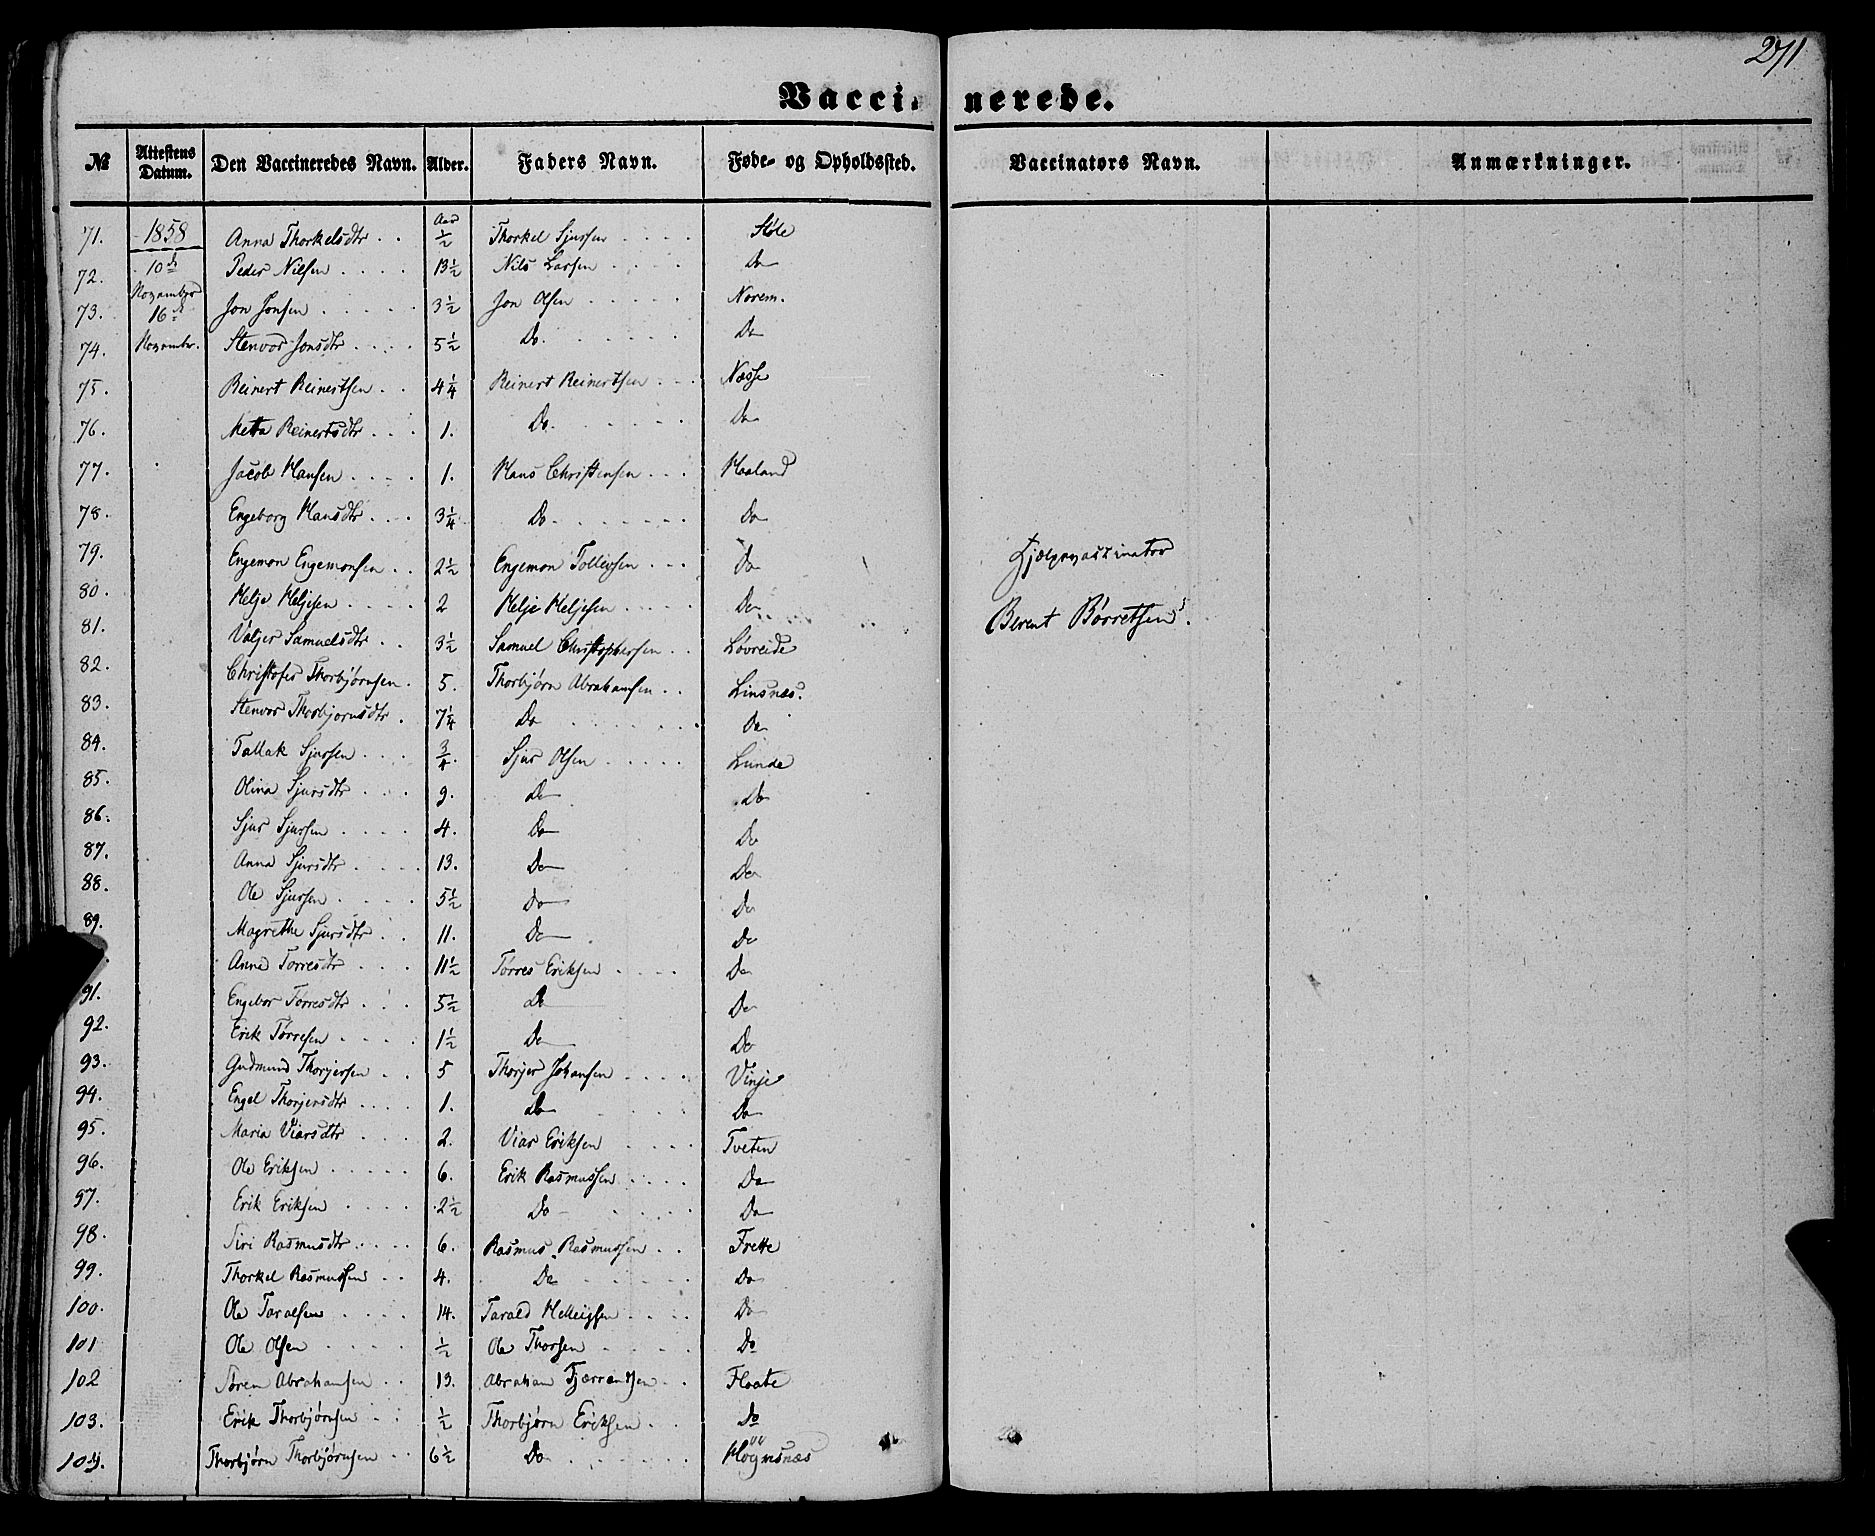 271
Vaccinerede.
№ Attestens Datum. Den Vaccineredes Navn. Alder. Faders Navn. Føde- og Opholdssted. Vaccinators Navn. Anmærkninger.
71. 1858 Anna Thorkelsdtr . . Aar ½ Thorkel Sjursen . . . . Støle
72. 10de Peder Nilsen . . . . 13½ Nils Larsen . . . . Do
73. November 16de Jon Jonsen . . . . . 3½ Jon Olsen . . . . . Norem.
74. Novembr. Stenvor Jonsdtr . . . . 5½ Do. . . . . . Do
75. Reinert Reinertsen . . 4¼ Reinert Reinertsen . . . Næsse
76. Metta Reinertsdtr . . . 1. Do. . . . . Do
77. Jacob Hansen . . . . 1. Hans Christensen . . . Haaland
78. Engeborg Hansdtr . . . 3¼ Do. . . . . . . Do
79. Engemon Engemonsen . . 2½ Engemon Tollevsen . . . Do
80. Helje Heljesen . . . . 2 Helje Heljesen . . . . Do
81. Valger Samuelsdtr . . 3½ Samuel Christophersen . . Løvreide
82. Christofer Thorbjørnsen . 5. Thorbjørn Abrahamsen . . Linsnæs.
83. Stenvor Thorbjornsdtr . 7¼ Do . . . . . Do
84. Tallak Sjursen . . . ¾. Sjur Olsen . . . . . Lunde
85. Olina Sjursdtr . . . 9. Do Do
86. Sjur Sjursen . . . . 4. Do Do
87. Anna Sjursdtr . . . . 13. Do Do
88. Ole Sjursen . . . . . 5½ Do Do
89. Magrethe Sjursdtr . . 11. Do Do
Anna Tørresdtr . . . 11½ Tørres Eriksen . . . . Do
91. Engebor Tørresdtr . . . 5½ Do Do
92. Erik Tørresen . . . . 1½ Do Do
93. Gudmund Thorjersen . . 5 Thorjer Johansen . . . . Vinje
94. Engel Thorjersdtr . . . . 1. Do . . . . Do
95. Maria Viarsdtr . . . . 2. Viar Eriksen . . . . Tveten
96. Ole Eriksen . . . . . 6. Erik Rasmussen . . . . Do
97. Erik Eriksen . . . . 2½ Do . . . . . Do
98. Siri Rasmusdtr . . . . 6. Rasmus Rasmussen . . Frette
99. Thorkel Rasmussen . . 4. Do . . . . . Do
100. Ole Taralsen . . . . 14. Tarald Helleigsen . . . . Do
101 Ole Olsen . . . . ½ Ole Thorsen . . . . Do
102 Søren Abrahamsen . . 13. Abraham . . Flaate
103. Erik Thorbjørnsen . . ½ Thorbjørn Eriksen . . Do
104. Thorbjørn Thorbjørnsen . . 6½ Do . . . . . . Høgnsnæs
Hjælpevaccinator
Berent Børretsen.